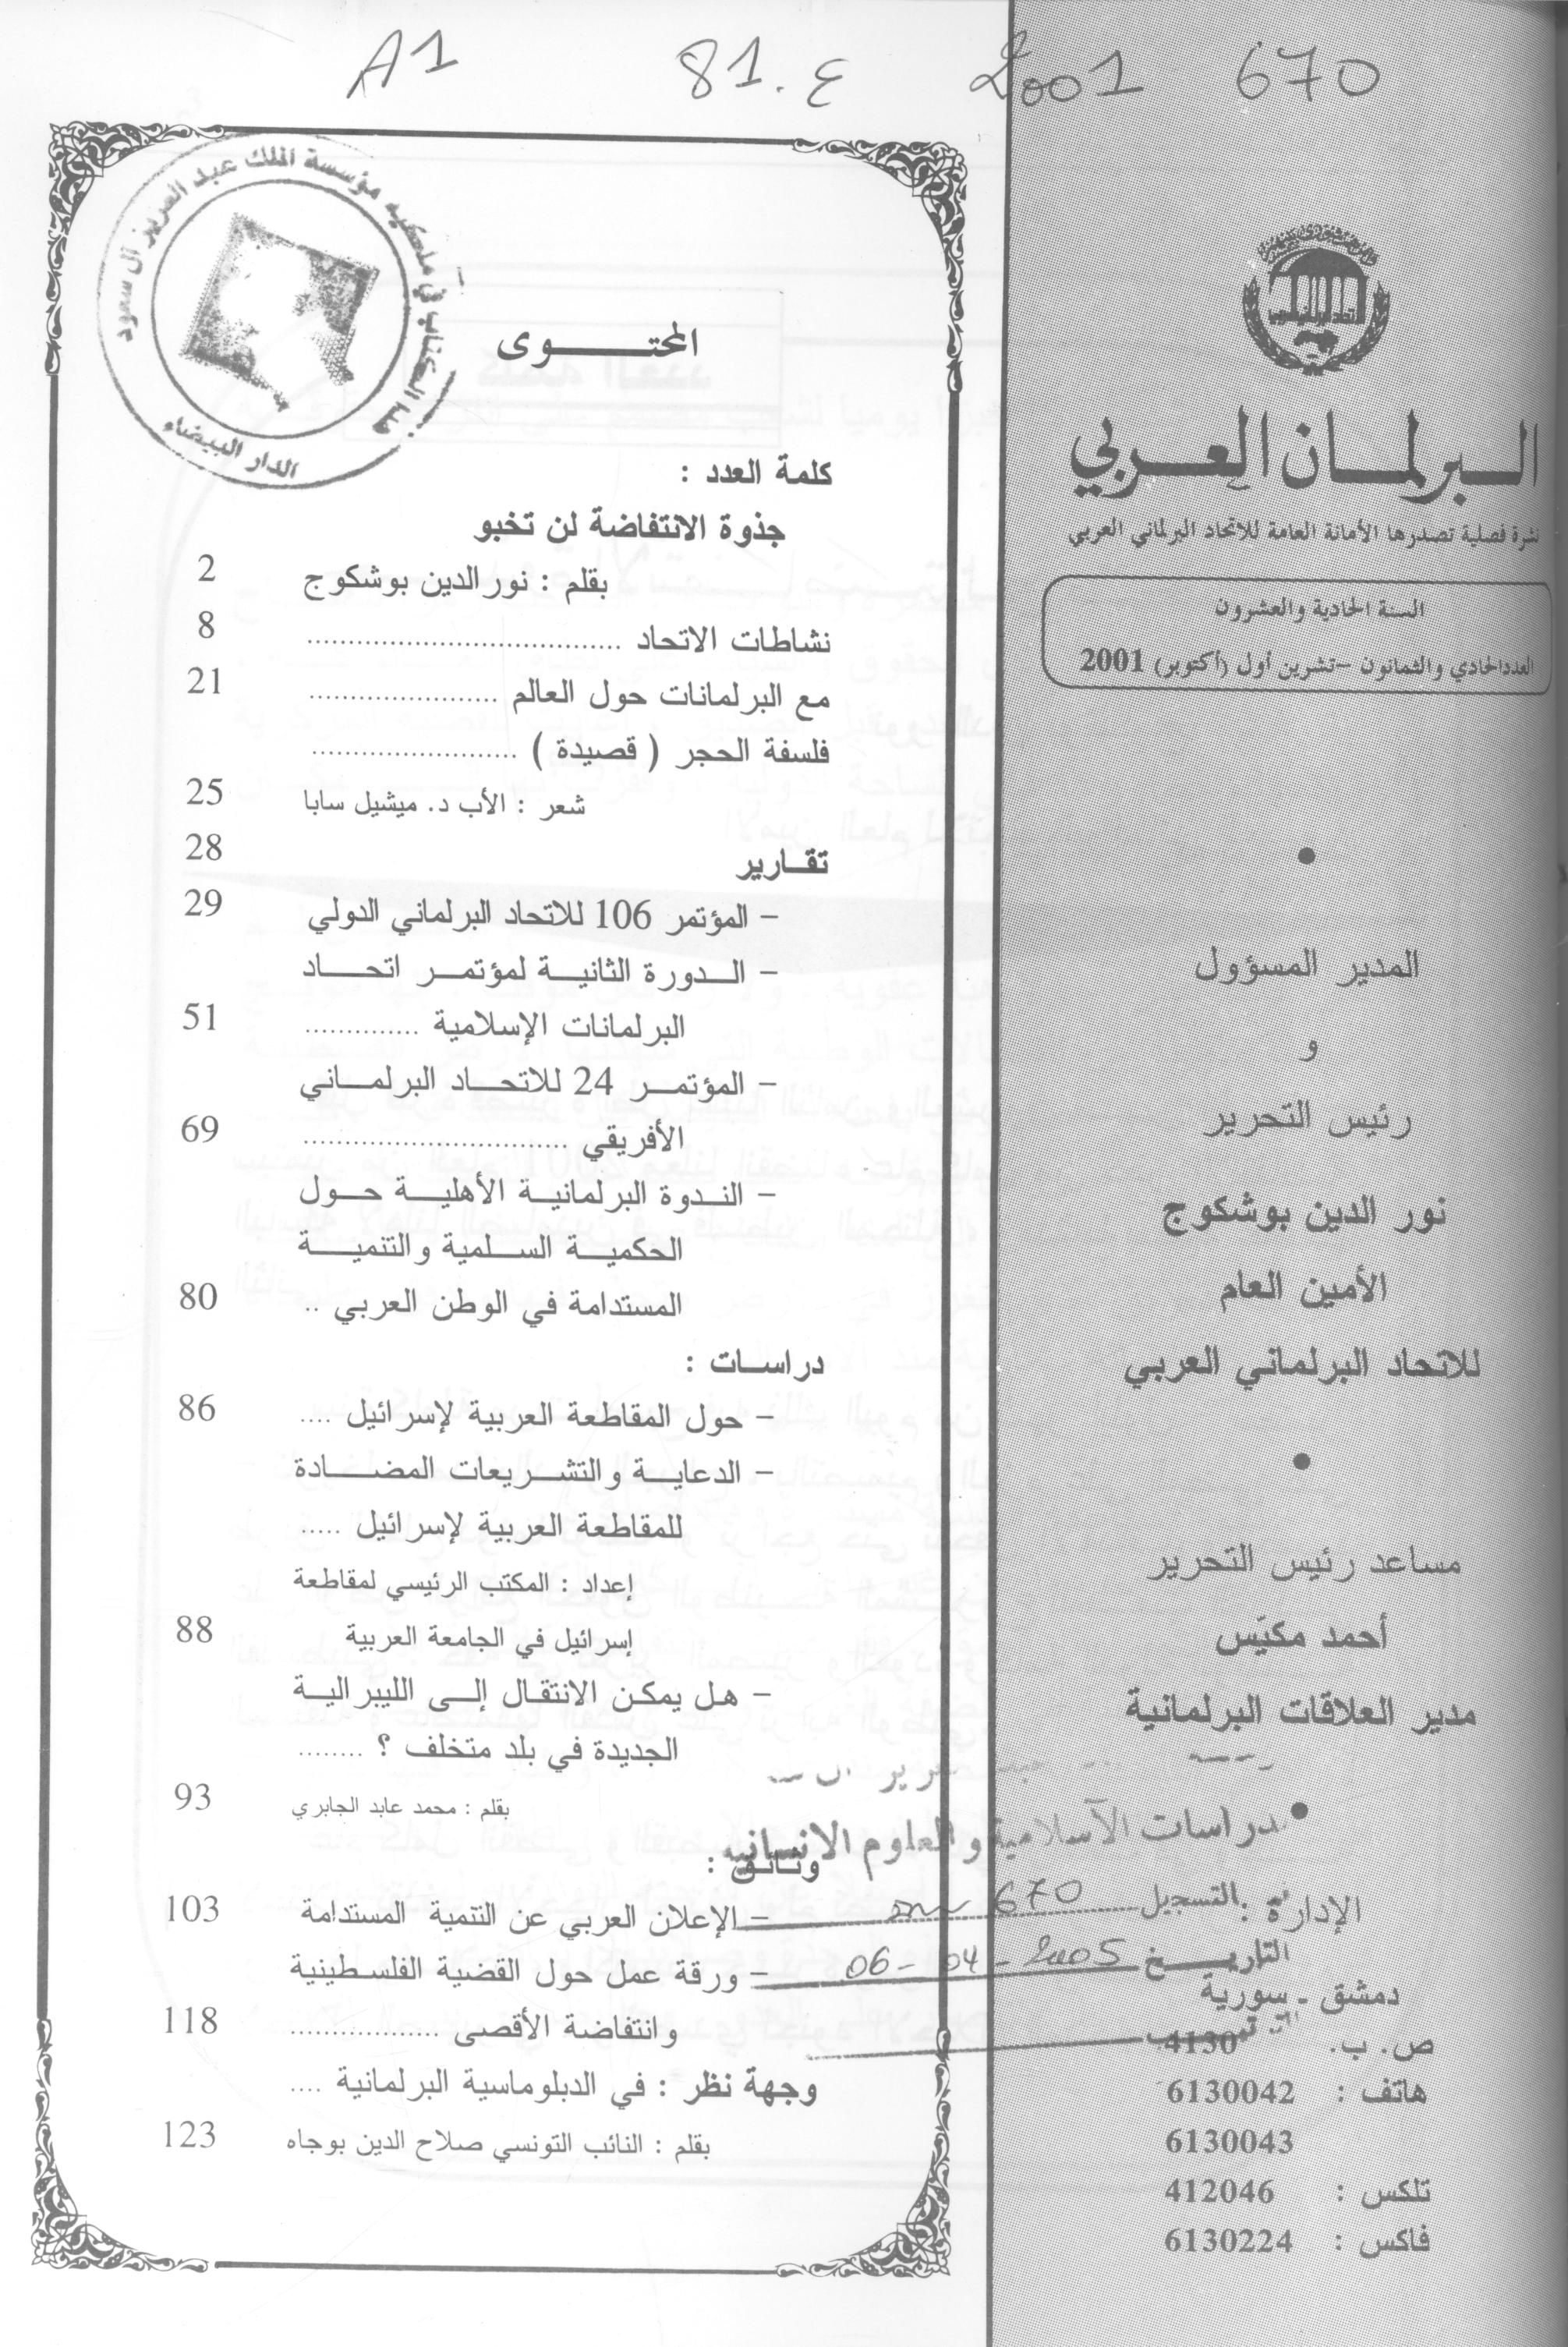 A1 81.ع 2001 670
البرلمان العربي
نشرة فصلية تصدرها الأمانة العامة للاتحاد البرلماني العربي
السنة الحادية والعشرون
العدد الحادي والثمانون – تشرين أول (أكتوبر) 2001
المدير المسؤول
و
رئيس التحرير
نور الدين بوشكوج
الأمين العام
للاتحاد البرلماني العربي
مساعد رئيس التحرير
أحمد مكيّس
مدير العلاقات البرلمانية
الإدارة :
دمشق - سورية
ص. ب. 4130
هاتف : 6130042
6130043
تلكس : 412046
فاكس : 6130224
هذا الكتاب في ملكية مؤسسة الملك عبد العزيز آل سعود
الدار البيضاء
المحتـــوى
كلمة العدد :
جذوة الانتفاضة لن تخبو
بقلم : نور الدين بوشكوج 2
نشاطات الاتحاد ................................ 8
مع البرلمانات حول العالم ................... 21
فلسفة الحجر ( قصيدة ) .....................
شعر : الأب د. ميشيل سابا 25
تقـارير 28
– المؤتمر 106 للاتحاد البرلماني الدولي 29
– الدورة الثانية لمؤتمر اتحاد
البرلمانات الإسلامية ............ 51
– المؤتمر 24 للاتحاد البرلماني
الأفريقي ........................... 69
– الندوة البرلمانية الأهلية حول
الحكمية السلمية والتنمية
المستدامة في الوطن العربي .. 80
دراسات :
– حول المقاطعة العربية لإسرائيل .... 86
– الدعاية والتشريعات المضادة
للمقاطعة العربية لإسرائيل .....
إعداد : المكتب الرئيسي لمقاطعة
إسرائيل في الجامعة العربية 88
– هل يمكن الانتقال إلى الليبرالية
الجديدة في بلد متخلف ؟ ........
بقلم : محمد عابد الجابري 93
وثائق :
– الإعلان العربي عن التنمية المستدامة 103
– ورقة عمل حول القضية الفلسطينية
وانتفاضة الأقصى ................ 118
وجهة نظر : في الدبلوماسية البرلمانية ....
بقلم : النائب التونسي صلاح الدين بوجاه 123
دراسات الآسلامية والعلوم الانسانيه
التسجيل 670
التاريـخ 2005 - 04 - 06